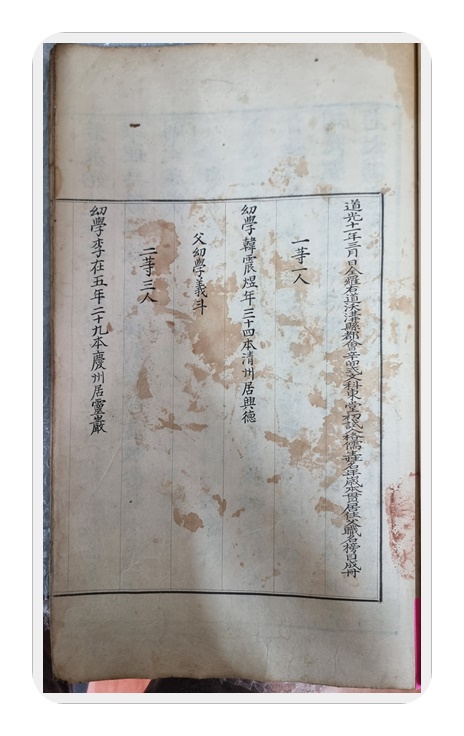 道光十一年三月日全羅右道沃溝縣都會辛卯式文科東堂初試入格儒生姓名年歲本貫居住父職名榜目成冊
一等一人
幼學韓震煜年三十四本清州居興德
父幼學義斗
二等三人
幼學李在五年二十九本慶州居靈巖